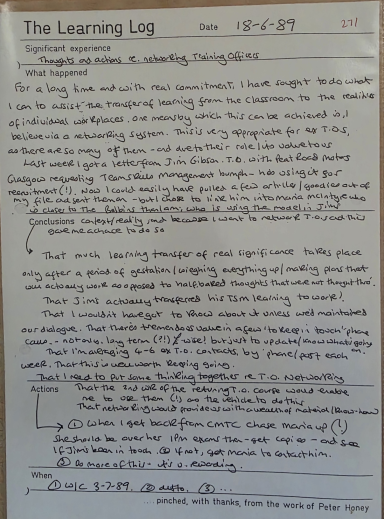 The Learning Log Date 18-6-89 271
Significant experience
Thoughts and actions re. networking Training Officers
What happened
For a long time and with real commitment, I have sought to do what
I can to assist the transfer of learning from the classroom to the realities
of individual workplaces, one means by which this can be achieved is, I
believe via a networking system. This is very appropriate for T.O.S,
as there are so many of them - and due to their role/ value to us
Last week I got a letter from Jim Gibson. T.O. with
Glasgow requesting Teamskills management bumph - he's using it for
recruitment (!). Now I could easily have pulled a few articles/goodies out of
my file and sent them on - but chose to link him into Maria McIntyre who
is closer to the Belbins than I am, who is using the model in Jim's
Conclusions context/reality, and because I want to network T.O.s and this
gave me a chance to do so
That much learning transfer of real significance takes place
only after a period of gestation/weighing everything up/making plans that
will actually work as opposed to halfbaked thoughts that were not thought thro'.
That Jim's actually transferred his TSM learning to work!.
That I wouldn't have got to know about it unless we'd maintained
our dialogue. That there's tremendous value in a few 'to keep in touch' phone
calls - not only long term (?!) wise! but just to update/know what's going on.
That I'm averaging 4-6 T.O. contacts, by phone/post each
week. That this is well worth keeping going.
That I need to put some thinking together re T.O. Networking
Actions That the 2nd wk of the returning T.O. course would enable
me to use them (!) as the vehicle to do this
That networking would provide us with a wealth of material/know-how
① When I get back from CMTC chase Maria up (!)
She should be over her IPM exams then - get copies - and see
If Jim's been in touch. ② If not, get Maria to contact him.
③ Do more of this - it's v. rewarding.
When
① W/C 3-7-89. ② ditto. ③ ...
.... pinched, with thanks, from the work of Peter Honey